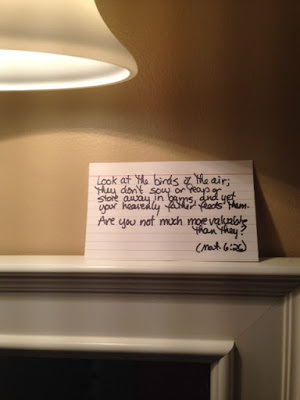 Look at the birds of the air;
they don't sow or reap or
store away in barns, and yet
your heavenly father feeds them.
Are you not much more valuable
than they?
(Matt 6:26)